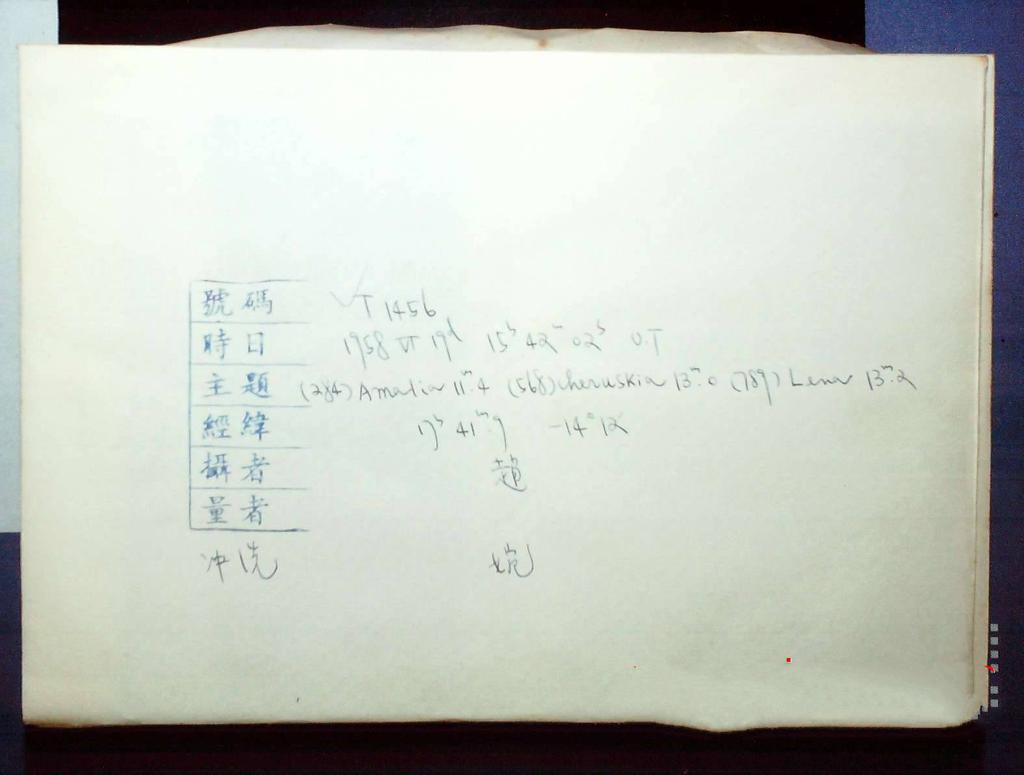 號碼 T 1456
時日 1958 VI 19ᵈ 15ʰ 42ᵐ 02ˢ U.T
主題 (284) Amalia 11ᵐ.4 (568) Cheruskia 13ᵐ.0 (789) Lena 13ᵐ.2
經緯 17ʰ 41ᵐ.9 -14° 12'
攝者 趙
量者
冲洗 婉